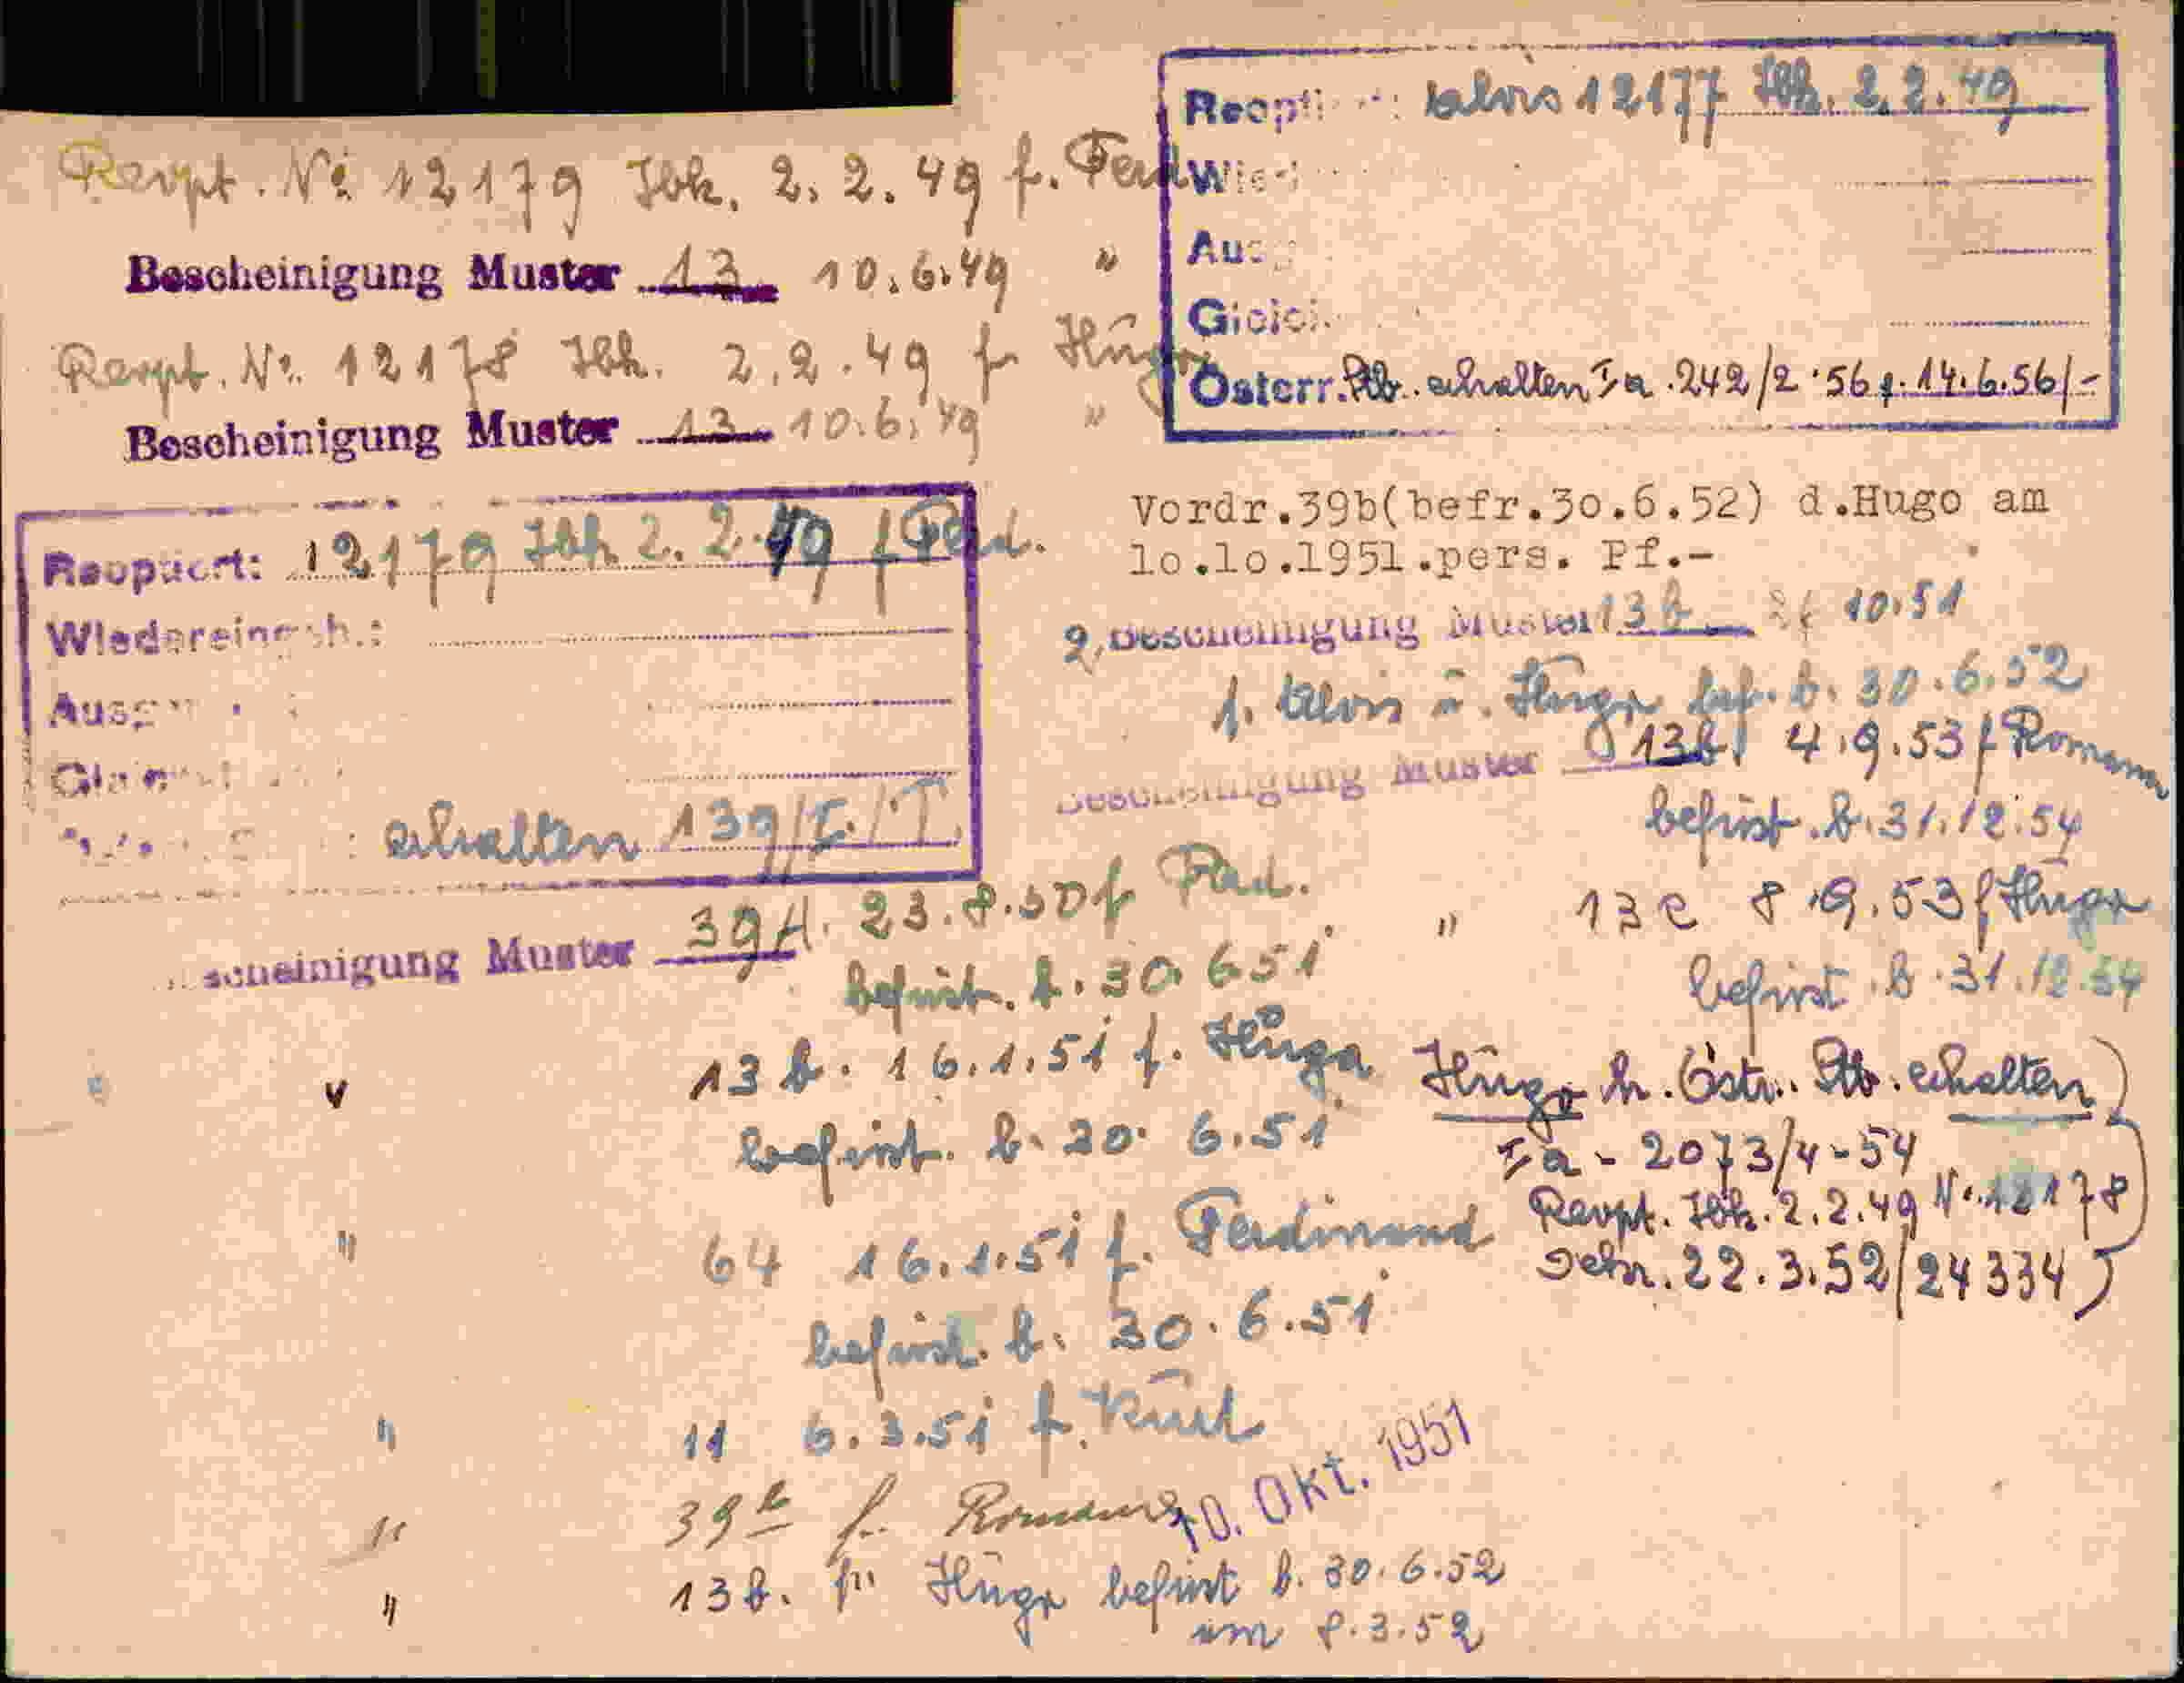 Revpt. No 12179 Ibk. 2.2.49 f. Ferd
Bescheinigung Muster 13 10.6.49 "
Revpt. Nr. 12178 Ibk. 2.2.49 f. Hugo
Bescheinigung Muster 13 10.6.49 "
Alois 12177 Ibk. 2.2.49
Österr. Stb. erhalten Ia. 242/2.56 f. 14.6.56/-
12179 Ibk 2.2.49 f Ferd.
Wiedereingeb.:
erhalten 139/I./T.
scheinigung Muster 39A. 23.8.50 f Ferd.
befrist. b. 30.6.51
" 13b. 16.1.51 f. Hugo
befrist. b. 30.6.51
" 64 16.1.51 f. Ferdinand
befrist. b. 30.6.51
" 11 6.3.51 f. Kurt
" 39b f. Romana 10. Okt. 1951
" 13b. f. Hugo befrist b. 30.6.52
am 8.3.52
Vordr.39b(befr.30.6.52) d.Hugo am
lo.lo.1951.pers. Pf.-
2, Bescheinigung Muster 13b 10.51
f. Alois u. Hugo bef. b. 30.6.52
Bescheinigung Muster 13b 4.9.53 f Romana
befrist. b. 31.12.54
" 13e 8.9.53 f Hugo
befrist. b. 31.12.54
Hugo h. Östr. Stb. erhalten)
Ia - 2073/4-54
Revpt. Ibk. 2.2.49 Nr. 12178
22.3.52/24334)